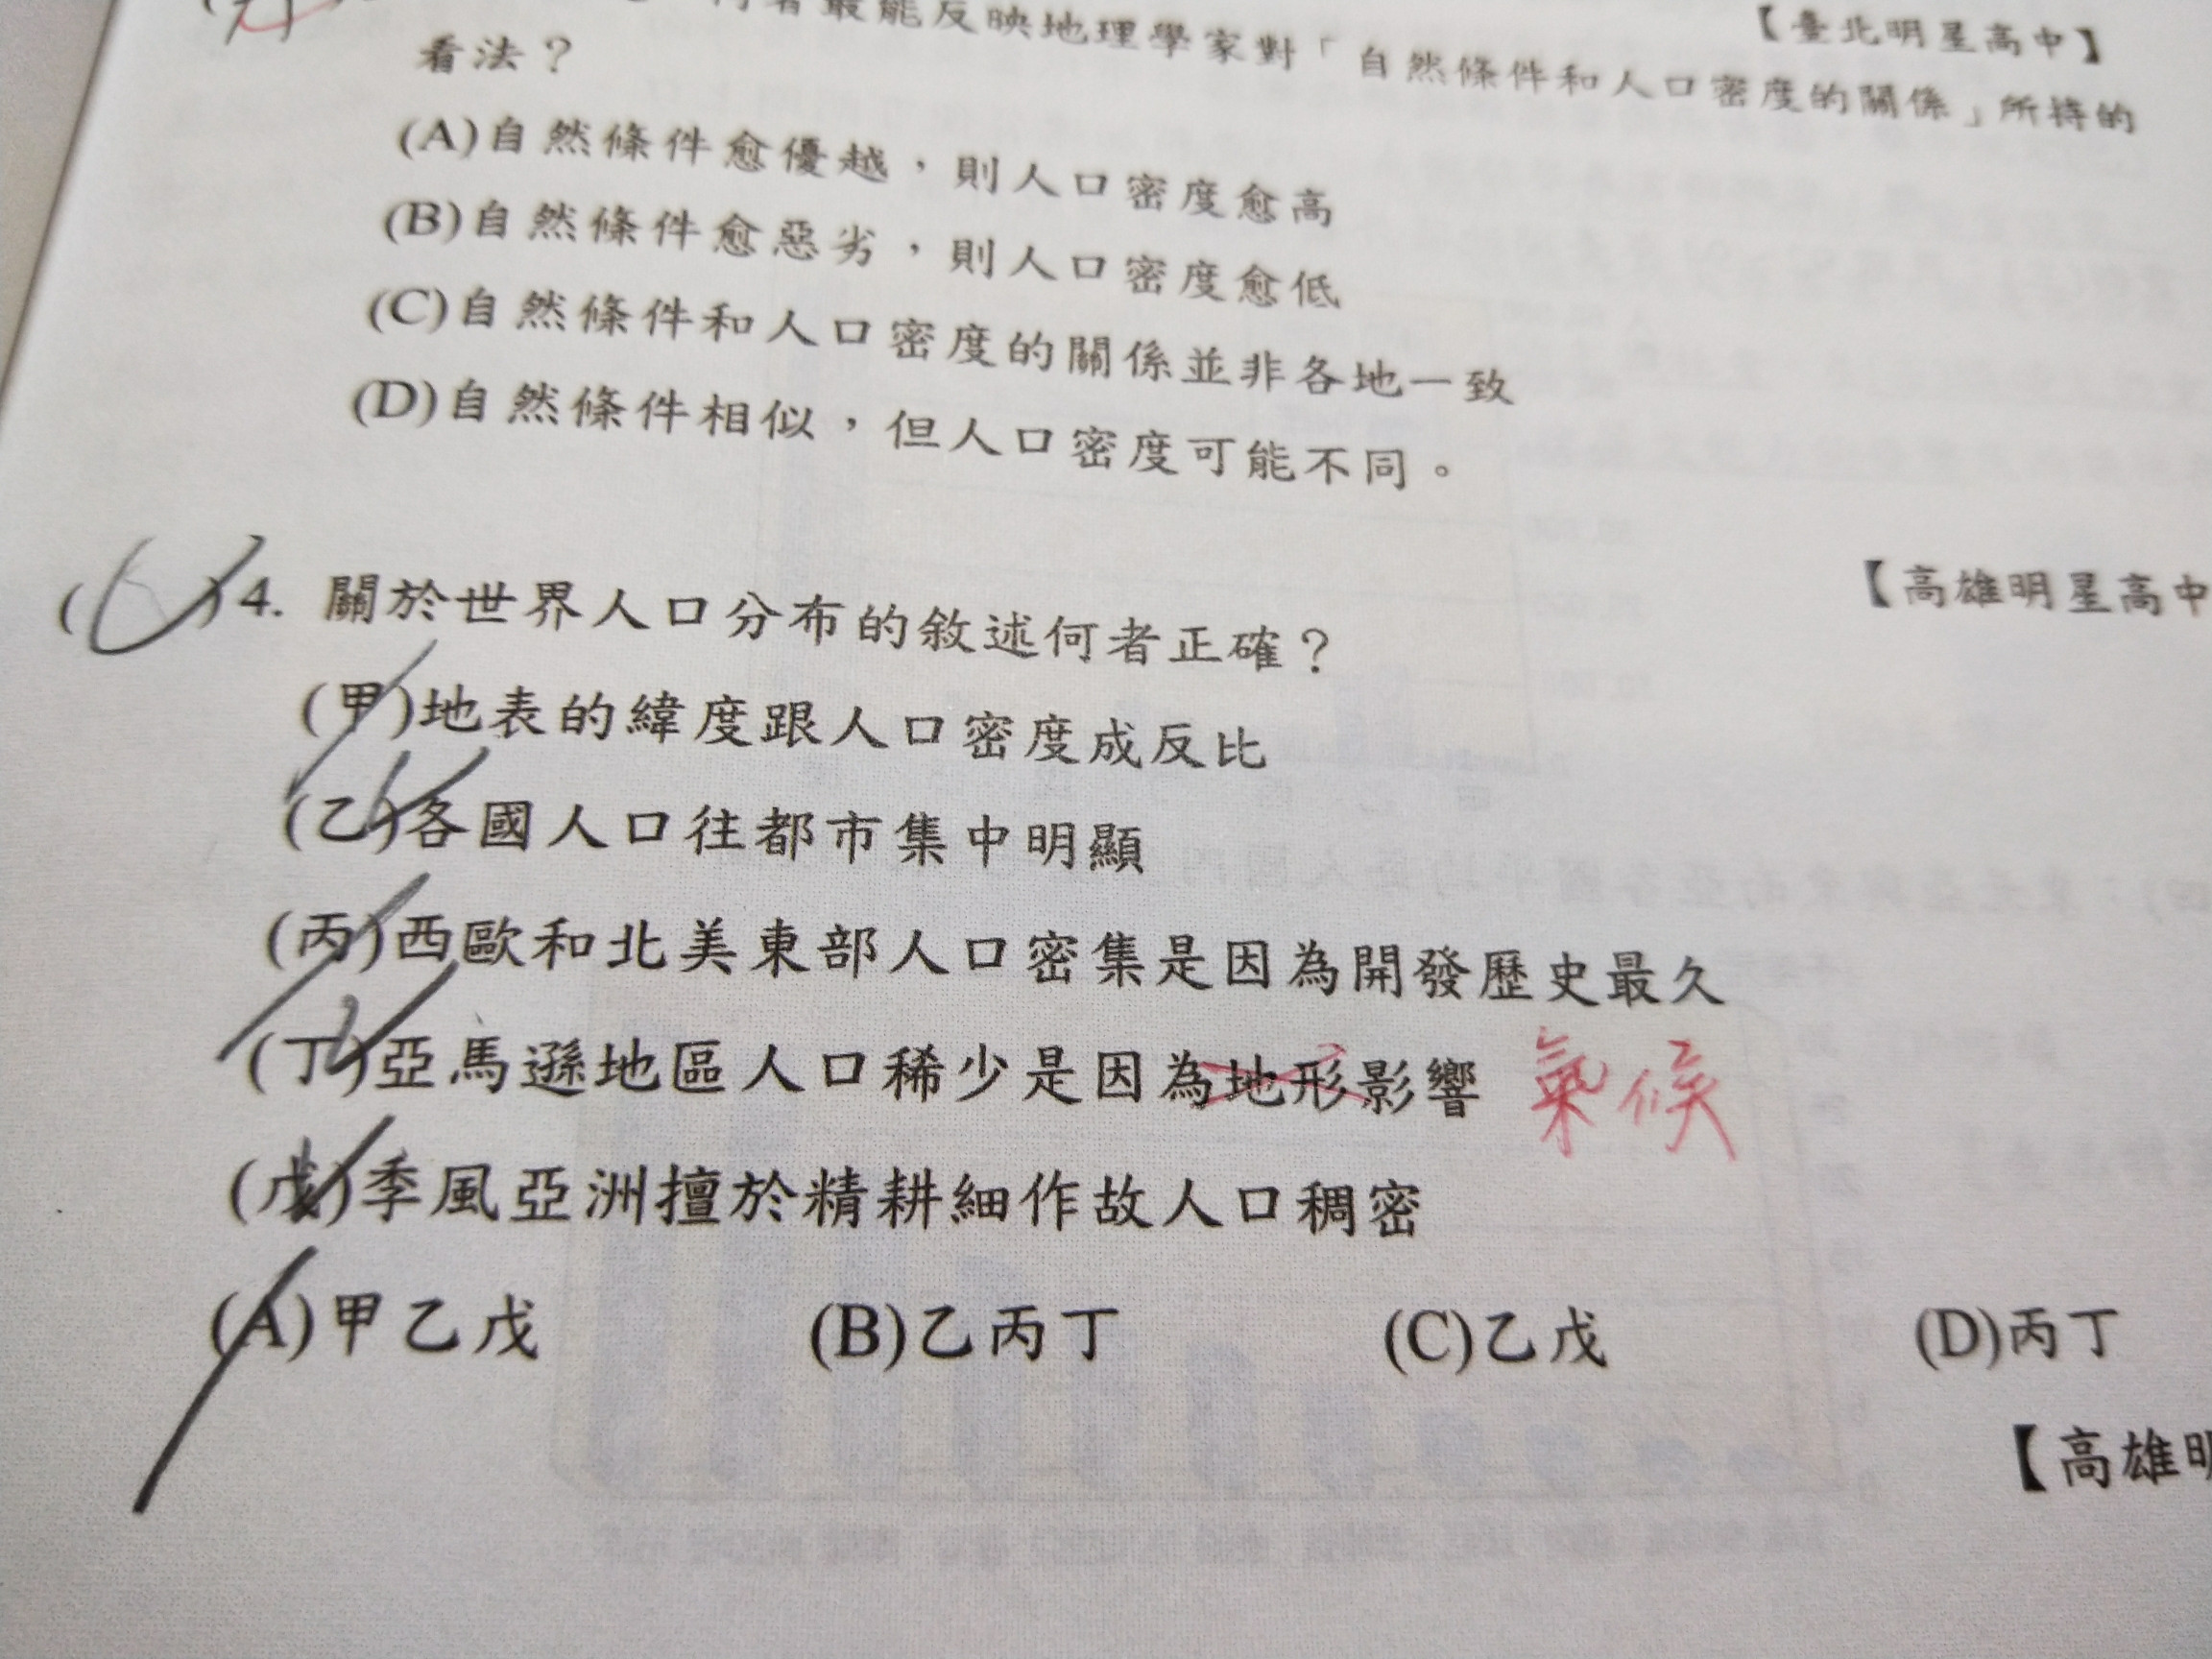 【臺北明星高中】
最能反映地理學家對「自然條件和人口密度的關係」所持的
看法？
(A)自然條件愈優越，則人口密度愈高
(B)自然條件愈惡劣，則人口密度愈低
(C)自然條件和人口密度的關係並非各地一致
(D)自然條件相似，但人口密度可能不同。
【高雄明星高中
( )4. 關於世界人口分布的敘述何者正確？
(甲)地表的緯度跟人口密度成反比
(乙)各國人口往都市集中明顯
(丙)西歐和北美東部人口密集是因為開發歷史最久
(丁)亞馬遜地區人口稀少是因為地形影響 氣候
(戊)季風亞洲擅於精耕細作故人口稠密
(A)甲乙戊 (B)乙丙丁 (C)乙戊 (D)丙丁
【高雄明